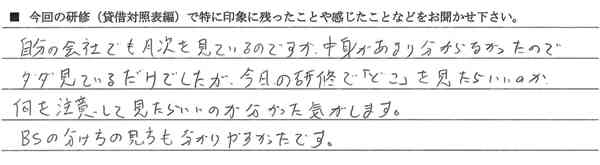 ■ 今回の研修（貸借対照表編）で特に印象に残ったことや感じたことなどをお聞かせ下さい。
自分の会社でも月次を見ているのですが、中身があまり分からなかったので
タダ見ているだけでしたが、今日の研修で「どこ」を見たらいいのか
何を注意して見たらいいのか分かった気がします。
BSの分け方の見方も分かりやすかったです。